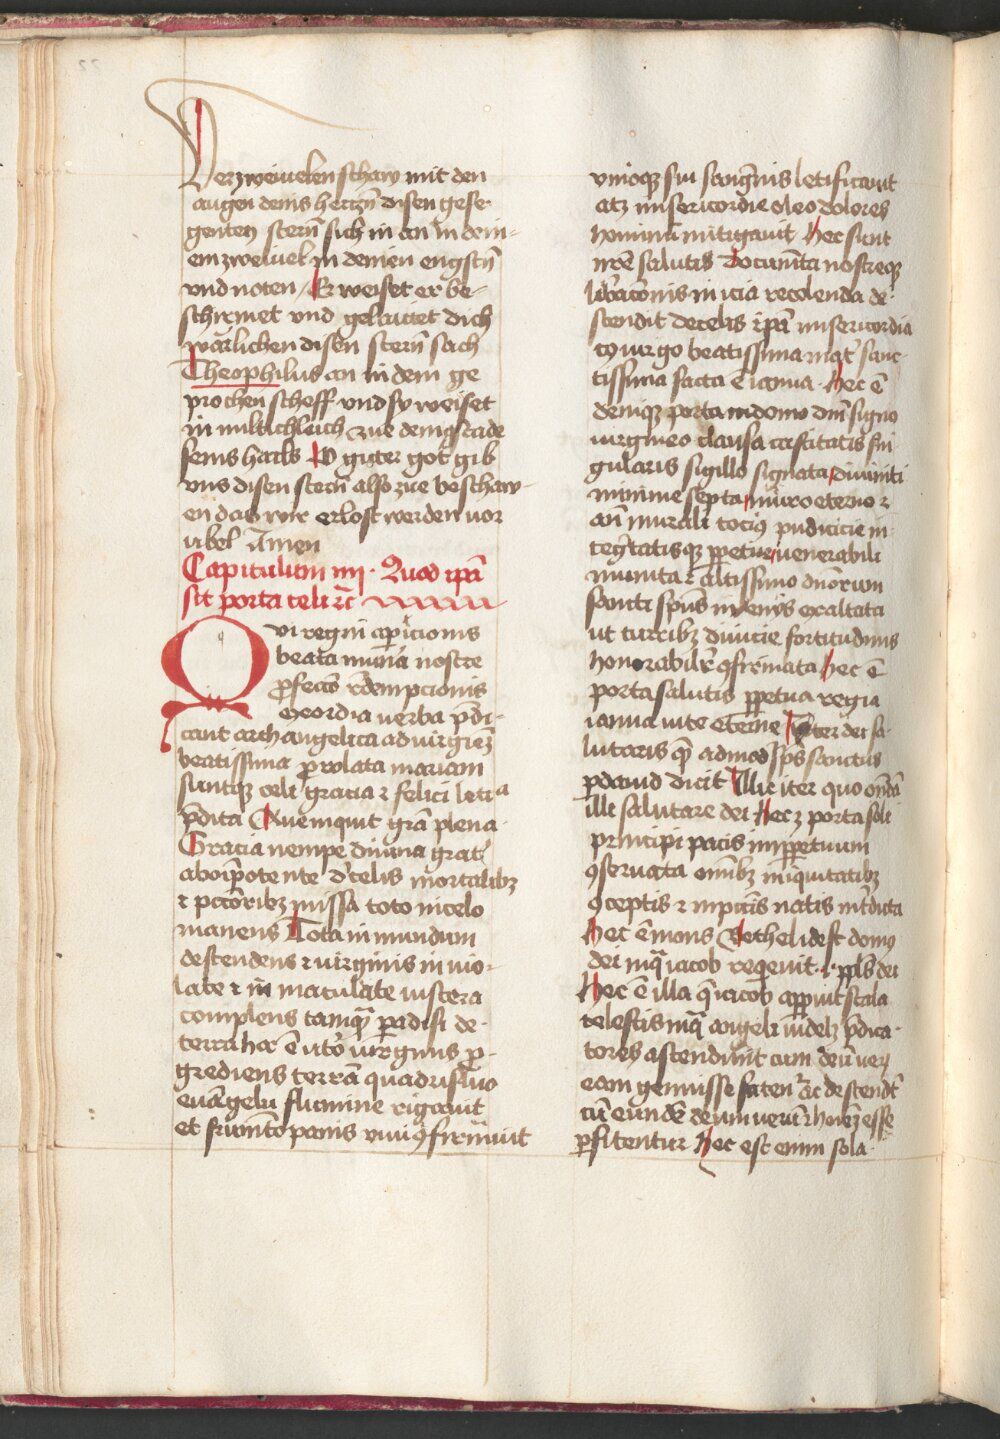 Verzweiuelen schaw mit den
augen deins hertzn̄ disen gese-
genten stern̄ sich in an in dein-
em zweiuel in deinen engstn̄
vnd noten / Er weiset er be-
schirmet vnd gelaittet dich
wärlichen disen stern̄ sach
Theophilus an in dem ge
prochen scheff vnd sy weiset
in miltichleich zue dem gstade
seins hails O guter got gib
vns disen stern̄ also zue beschaw-
en das wir erlost werden vor
vbel Amen
Capitulum iiij. Quod ip̄a
sit porta celi ⁊c̄
Qvi regni ap̄icionis
beata munia nostre
ꝓfecto rēdempcionis
exordia uerba p̄di-
cant archangelica ad uirginēʒ
beatissima ꝓrolata mariam
suntqʒ celi gracia ⁊ felici letia
p̄dita Aue inquit gr̄a plena
Gracia nempe diuina grat̉
ab oīpotente d̉ celis mortalibʒ
⁊ pctōribʒ missa toto in celo
manens Tota in mundum
descendens ⁊ uirginis in uio-
late ⁊ in maculate uiscera
complens tamqꝫ paradisi de
terra hec ē ut̉o uirginis ꝓ-
grediens terrā quadrifluo
ewāngelii flumine rigauit
et frumēto panis uiui ꝯfirmauit
vnioqʒ sui sangwis letificauit
atʒ misericordie oleo dolores
hominū mitigauit Hec sunt
nr̄e salutis Documēta nostreqʒ
lib̉acōnis inicia recolenda de-
scendit de celis ip̄a misericordia
cꝰ uirgo beatissima mat̉ sanc-
tissima facta ē ianua. Hec ē
denique porta in domo dnī signo
uirgineo clausa castitatis sin
gularis sigillo signata diuiniti
minime septa muro eterno ⁊
ān murali tociꝰ pudicicie in-
teg̉tatisqʒ ꝑpetue uenerabili
munita ⁊ altissimo dn̄orum
sancti sp̄us in uenijs exaltata
ut turribʒ diuicie fortitudinis
honorabilit̉ ꝯfirmata Hec ē
porta salutis ꝑpetua regia
ianua uite et̉ne Iter dei sa-
lutaris qͫ admōd sp̄s sanctus
ꝑ dauid dicit Illic iter quo on̄dā
illi salutare dei Hecʒ porta soli
principi pacis in ꝑpetuum
ꝯseruata om̄ibʒ iniquitatibʒ
ꝯceptis ⁊ in pctīs natis int̉dicta
Hec ē mons Bethel idest domꝰ
dei in qͣ iacob req̉euit .i. ppl̄s dei
Hec ē illa qͣ iacob apparuit scala
celestis in qͣ angeli uidelʒ p̄dica-
tores ascendunt cum deū uerꝫ
eam genuisse faten̄t ac descendt̄
cū eundē deum uerū ⁊ hoīeʒ esse
ꝓfitentur Hec est enim sola